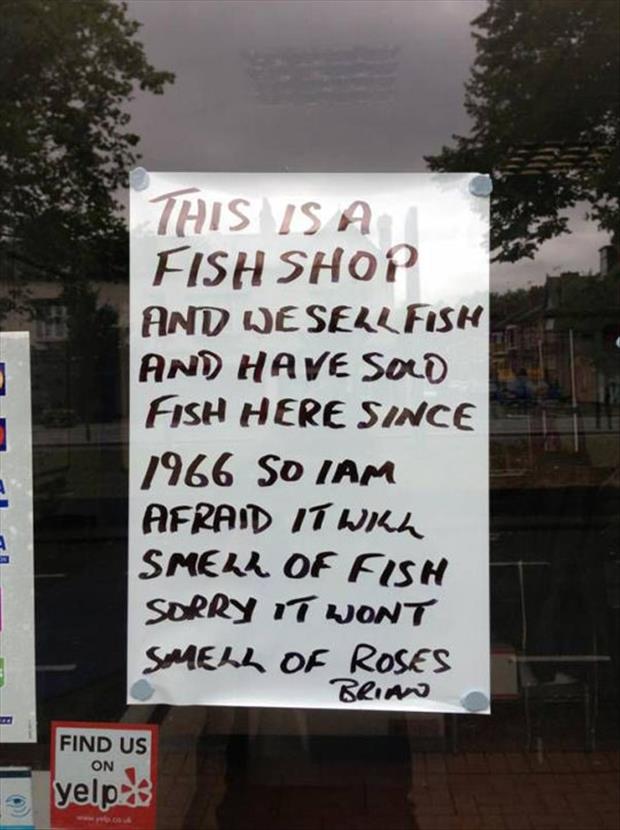 THIS IS A
FISH SHOP
AND WE SELL FISH
AND HAVE SOLD
FISH HERE SINCE
1966 SO I AM
AFRAID IT WILL
SMELL OF FISH
SORRY IT WONT
SMELL OF ROSES
BRIAN
FIND US
ON
yelp
www.yelp.co.uk